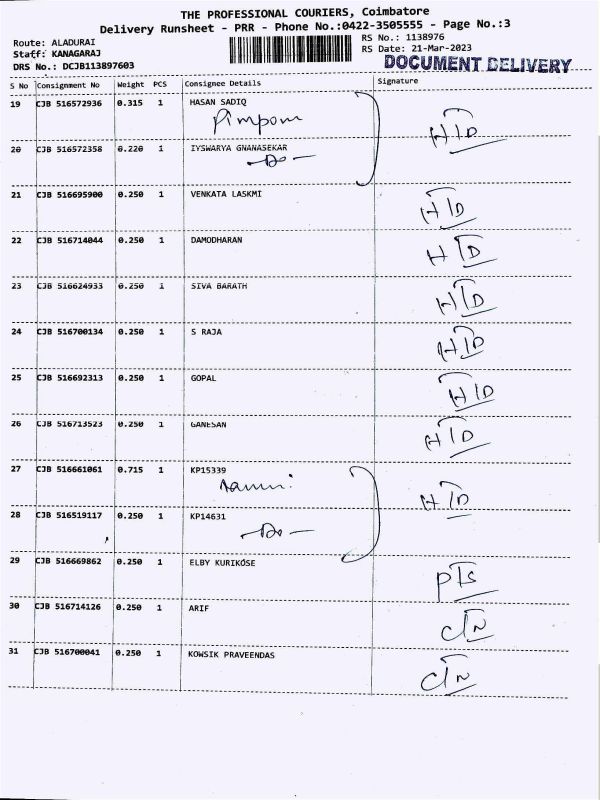 THE PROFESSIONAL COURIERS, Coimbatore
Delivery Runsheet - PRR - Phone No.:0422-3505555 - Page No.:3
Route: ALADURAI
Staff: KANAGARAJ
DRS No.: DCJB113897603
RS No.: 1138976
RS Date: 21-Mar-2023
DOCUMENT DELIVERY
S No Consignment No Weight PCS Consignee Details Signature
19 CJB 516572936 0.315 1 HASAN SADIQ
Pimpom
HTD
20 CJB 516572358 0.220 1 IYSWARYA GNANASEKAR
-Do-
21 CJB 516695900 0.250 1 VENKATA LASKMI HTD
22 CJB 516714044 0.250 1 DAMODHARAN HTD
23 CJB 516624933 0.250 1 SIVA BARATH HTD
24 CJB 516700134 0.250 1 S RAJA HTD
25 CJB 516692313 0.250 1 GOPAL HTD
26 CJB 516713523 0.250 1 GANESAN HTD
27 CJB 516661061 0.715 1 KP15339
HTD
28 CJB 516519117 0.250 1 KP14631
-Do-
29 CJB 516669862 0.250 1 ELBY KURIKOSE PTS
30 CJB 516714126 0.250 1 ARIF CTN
31 CJB 516700041 0.250 1 KOWSIK PRAVEENDAS CTN